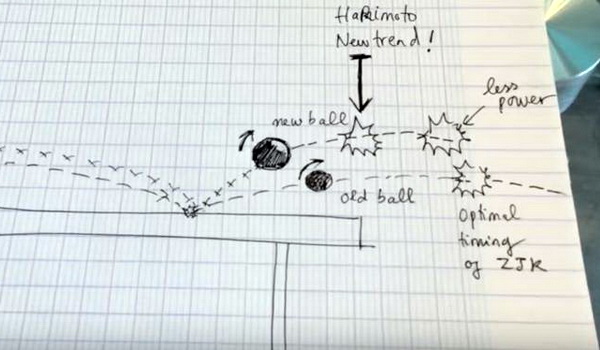 Harimoto
New trend!
less
power
new ball
old ball
Optimal
timing
of ZJK